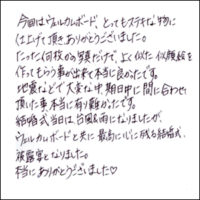 今回はウェルカムボード、とってもステキな物に
仕上げて頂きありがとうございました。
たった何枚かの写真だけで、よく似た似顔絵を
作ってもらう事が出来て本当に良かったです。
地震などで大変な中期日中に間に合わせ
頂いた事本当に有り難かったです。
結婚式当日は台風＆雨になりましたが、
ウェルカムボードと共に最高に心に残る結婚式、
披露宴となりました。
本当にありがとうございました♡